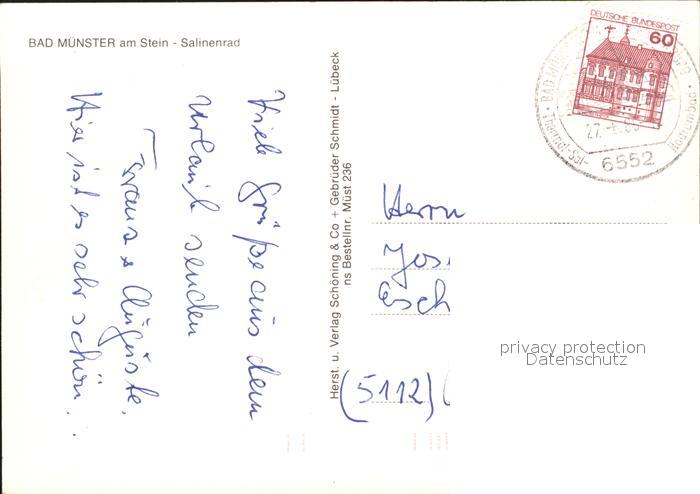 BAD MÜNSTER am Stein - Salinenrad
Viele Grüße aus dem
Urlaub senden
Franz + Auguste.
Hier ist es sehr schön.
Herst. u. Verlag Schöning & Co + Gebrüder Schmidt - Lübeck
ns Bestellnr. Müst 236
DEUTSCHE BUNDESPOST
60
BAD MÜN
Thermal-Sol-
Radium
27.
6552
Herrn
Jos
(5112)
privacy protection
Datenschutz